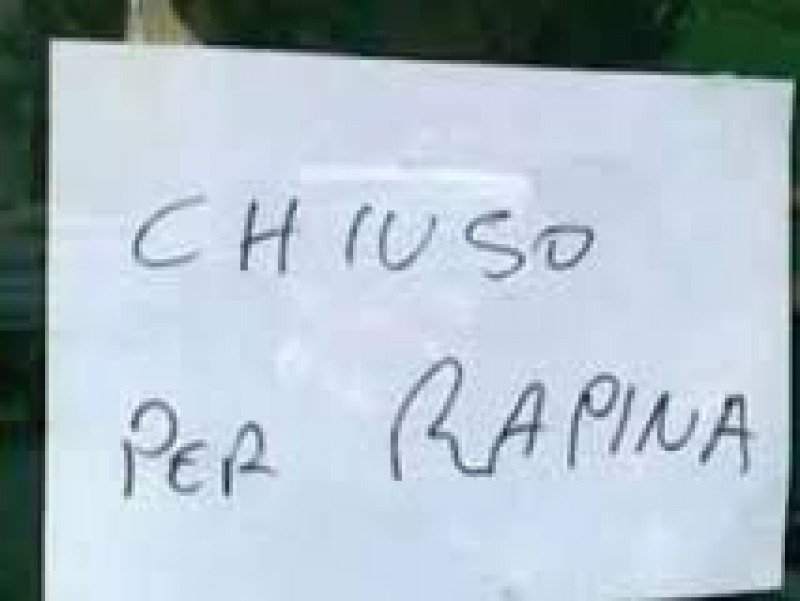 CHIUSO
PER RAPINA